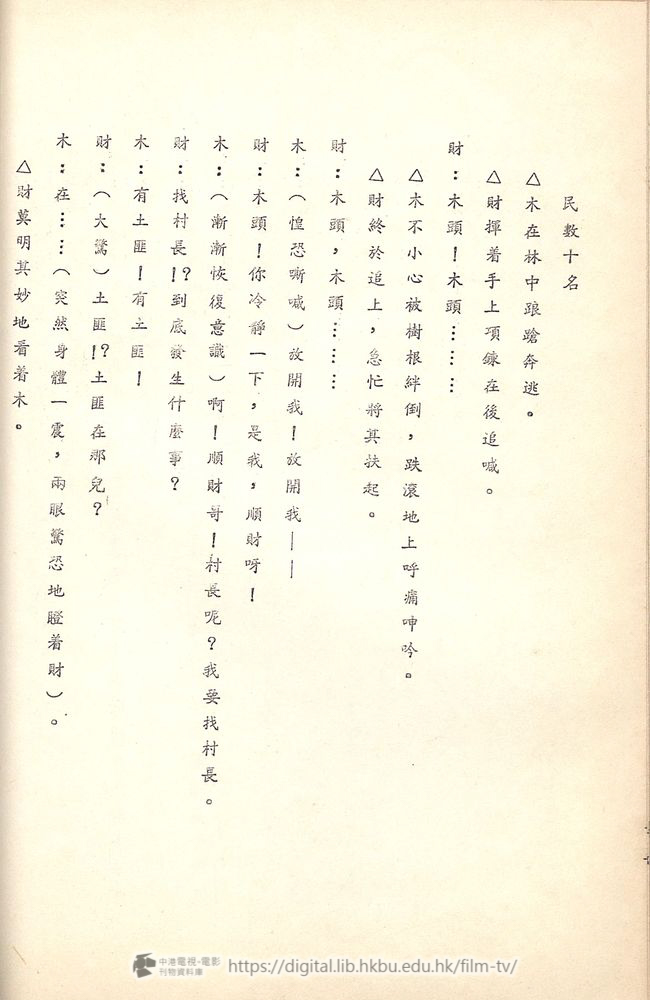 民數十名
△木在林中踉蹌奔逃。
△財揮着手上項鍊在後追喊。
財：木頭！木頭………
△木不小心被樹根絆倒，跌滾地上呼痛呻吟。
△財終於追上，急忙將其扶起。
財：木頭，木頭………
木：（惶恐嘶喊）放開我！放開我——
財：木頭！你冷靜一下，是我，順財呀！
木：（漸漸恢復意識）啊！順財哥！村長呢？我要找村長。
財：找村長！？到底發生什麼事？
木：有土匪！有土匪！
財：（大驚）土匪！？土匪在那兒？
木：在……（突然身體一震，兩眼驚恐地瞪着財）。
△財莫明其妙地看着木。
中港電視·電影
刊物資料庫
https://digital.lib.hkbu.edu.hk/film-tv/